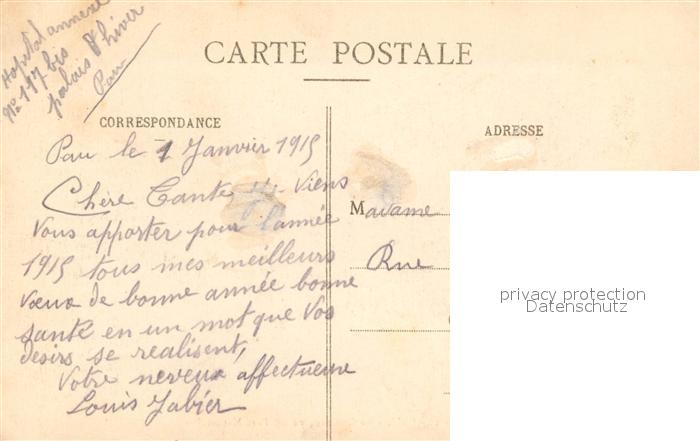 Hopital annexe
No 117 bis
palais d'hiver
Pau
CARTE POSTALE
CORRESPONDANCE
ADRESSE
Pau le 1 Janvier 1915
Chère Tante Je Viens
Vous apporter pour l'année
1915 tous mes meilleurs
vœux de bonne année bonne
santé en un mot que Vos
desirs se realisent,
Votre neveux affectueuse
Louis
Madame
Rue
privacy protection
Datenschutz